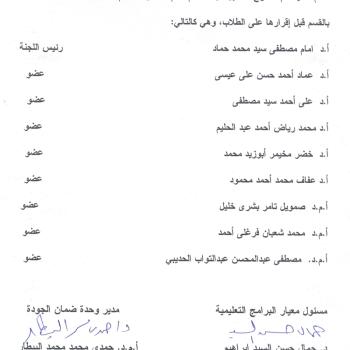 بالقسم قبل إقرارها على الطلاب، وهي كالتالي:
أ.د امام مصطفى سيد محمد حماد رئيس اللجنة
أ.د. عماد أحمد حسن على عيسى عضو
أ.د. على أحمد سيد مصطفى عضو
أ.د. محمد رياض أحمد عبد الحليم عضو
أ.د. خضر مخيمر أبوزيد محمد عضو
أ.د. عفاف محمد أحمد محمود عضو
أ.م.د. صمويل تامر بشرى خليل عضو
أ.م.د. محمد شعبان فرغلى أحمد عضو
أ.م.د. مصطفى عبدالمحسن عبدالتواب الحديبي عضو
مسئول معيار البرامج التعليمية مدير وحدة ضمان الجودة
د. جمال حسن السيد إبراهيم أ.م.د. حمدى محمد محمد البيطار